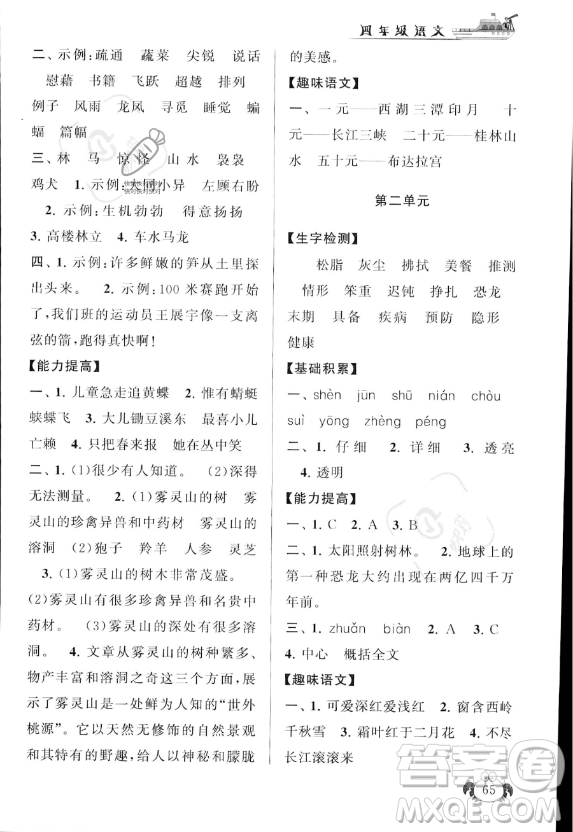 四年级语文
二、示例：疏通 蔬菜 尖锐 说话
慰藉 书籍 飞跃 超越 排列
例子 风雨 龙凤 寻觅 睡觉 蝙
蝠 篇幅
三、林 马 惊 怪 山水 袅袅
鸡犬 1. 示例：大同小异 左顾右盼
2. 示例：生机勃勃 得意扬扬
3. 高楼林立 4. 车水马龙
四、1. 示例：许多鲜嫩的笋从土里探
出头来。 2. 示例：100 米赛跑开始
了，我们班的运动员王展宇像一支离
弦的箭，跑得真快啊！
【能力提高】
一、1. 儿童急走追黄蝶 2. 惟有蜻蜓
蛱蝶飞 3. 大儿锄豆溪东 最喜小儿
亡赖 4. 只把春来报 她在丛中笑
二、1. (1)很少有人知道。 (2)深得
无法测量。 2. 雾灵山的树木 雾
灵山的珍禽异兽和中药材 雾灵山的
溶洞 (2)狍子 羚羊 人参 灵芝
3. (1)雾灵山的树木非常茂盛。
(2)雾灵山有很多珍禽异兽和名贵中
药材。 (3)雾灵山的深处有很多
溶洞。 4. 文章从雾灵山的树种繁多、
物产丰富和溶洞奇特这几个方面，展
示了雾灵山是一处鲜为人知的“世外
桃源”。它以天然无修饰的自然景观
和其特有的野趣，给人以神秘和朦胧
的美感。
【趣味语文】
一、一元——西湖三潭印月 十
元——长江三峡 二十元——桂林山
水 五十元——布达拉宫
第二单元
【生字检测】
松脂 灰尘 拂拭 美餐 推测
情形 笨重 迟钝 挣扎 恐龙
末期 具备 疾病 预防 隐形
健康
【基础积累】
一、shèn jūn shā nián chòu
suì yōng zhèng péng
二、1. 仔细 2. 详细 3. 透亮
4. 透明
【能力提高】
一、1. C 2. A 3. C
二、1. 太阳照射树林。 2. 地球上的
第一种恐龙大约出现在两亿四千万
年前。
三、1. zhuǎn biàn 2. C 3. A
4. 中心 概括全文
【趣味语文】
一、1. 可爱深红爱浅红 2. 窗含西岭
千秋雪 3. 霜叶红于二月花 4. 不尽
长江滚滚来
65
答案圈
MXQE.COM